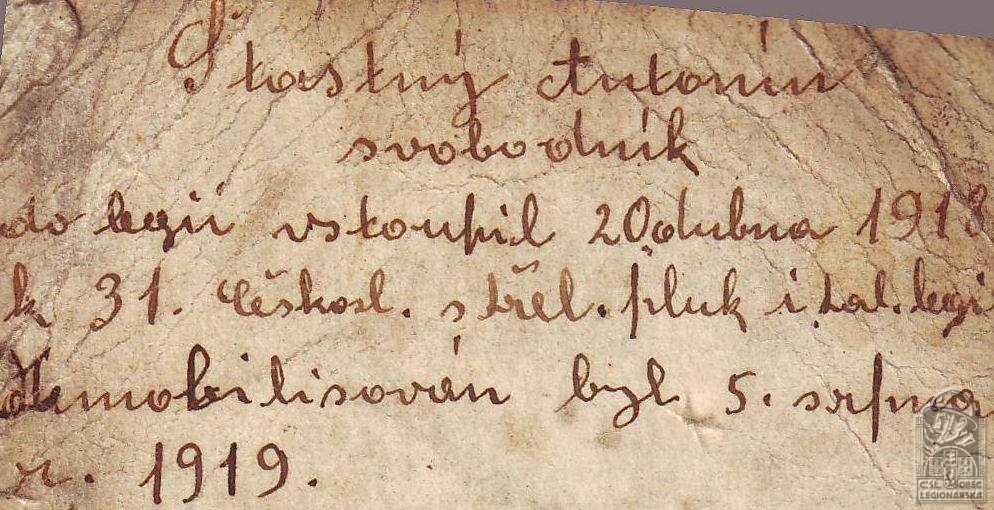 Šťastný Antonín
svobodník
do legií vstoupil 20. dubna 1918
k 31. českosl. střel. pluk ital. legi
Demobilisován byl 5. srpna
r. 1919.
ČSL. OBEC
LEGIONÁŘSKÁ